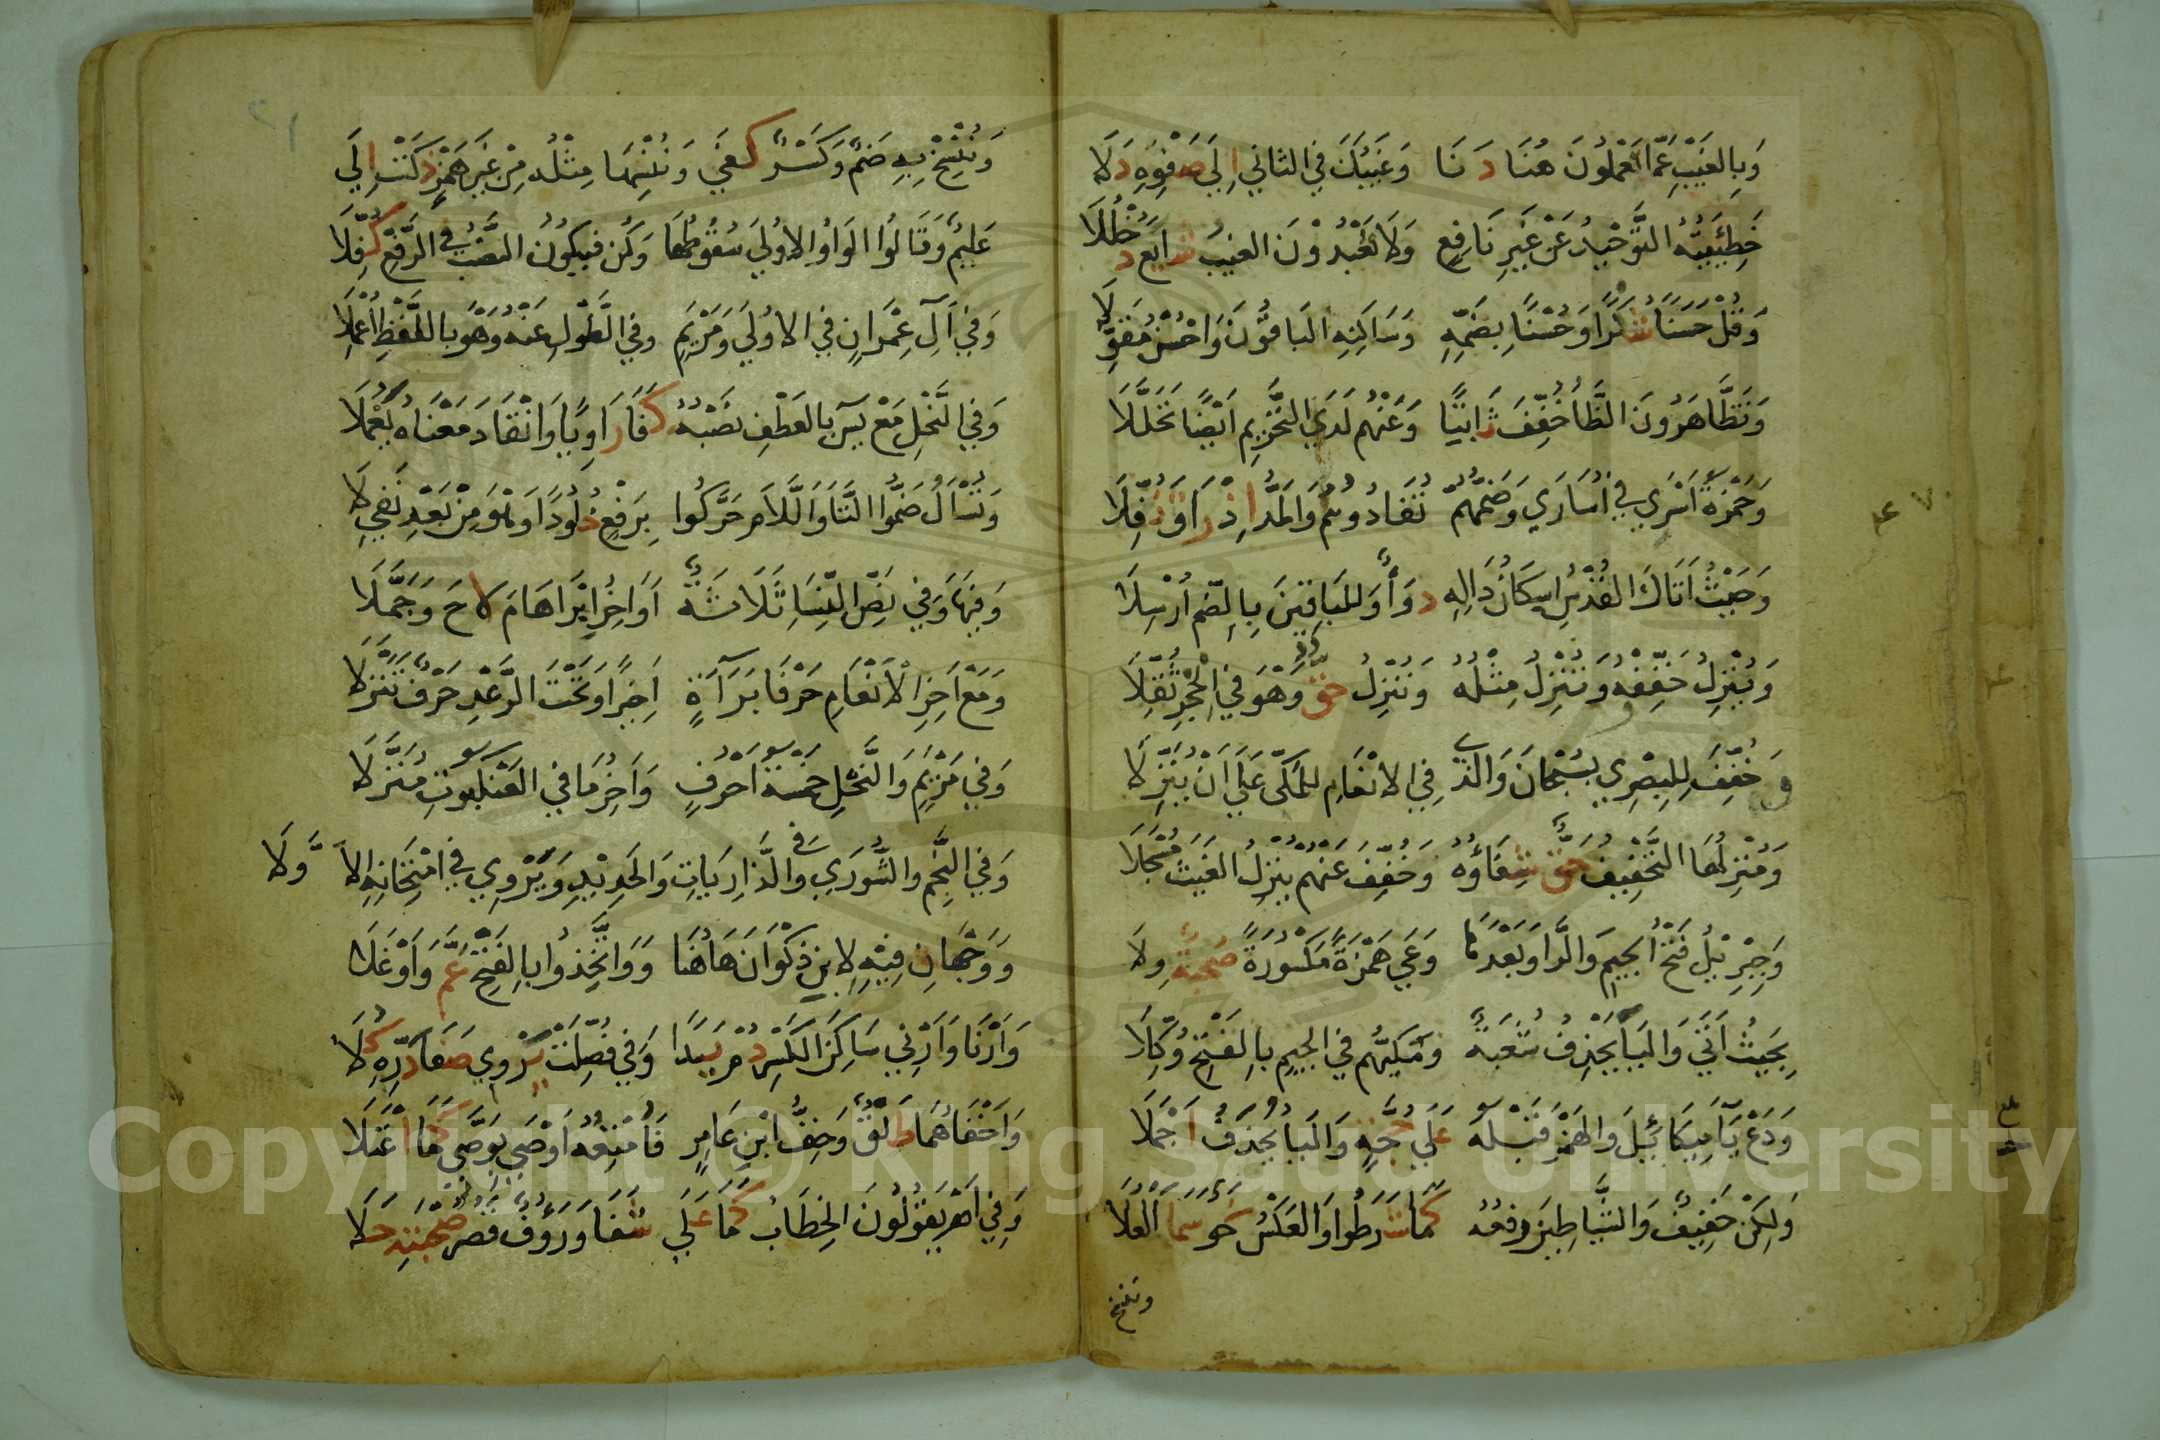 وَبِالغَيْبِ عَمَّا تَعْمَلُونَ هُنَا دَنَا وَغَيْبُكَ فِي الثاني اِلَى صَفْوِهِ دَلَا
خَطِيئَتُهُ التَّوْحِيدُ عَنْ غَيْرِ نَافِعٍ وَلَا يَعْبُدُوْنَ الغَيْبُ شَايَعَ دُخْلُلَا
وَقُلْ حَسَنًا شُكْرًا وَحُسْنًا بِضَمِّهِ وَسَاكِنِهِ البَاقُونَ وَاحْسُنْ مُقَوِّلَا
وَتَظَّاهَرُونَ الظَّا خُفِّفَ ثَابِتًا وَعَنْهُم لَدَى التَّحْرِيمِ اَيْضًا تَحَلَّلَا
وَحَمْزَةُ اَسْرَى فِي اُسَارَى وَضَمُّهُمْ تُفَادُوهُمُ وَالمَدُّ اِذْ رَاقَ نُفِّلَا
وَحَيْثُ اَتَاكَ القُدْسُ اِسْكَانُ دَالِهِ دَوَاءٌ وَللبَاقِينَ بِالضَّمِ اُرْسِلَا
وَيُنْزِلُ خَفِّفْهُ وَتُنْزِلُ مِثْلُهُ وَنُنْزِلُ حَقٌّ وَهْوَ فِي الْحِجْرِ ثُقِّلَا
وَخُفِّفَ لِلبَصْرِي بِسُبْحَانَ وَالَّذِي فِي الانْعَامِ للمَكِّي عَلَى اَنْ يُنَزِّلَا
وَمُنْزِلُهَا التَّخْفِيفُ حَقٌّ شِفَاؤُهُ وَخُفِّفَ عَنْهُمْ يُنْزِلُ الغَيْثَ مُسْجَلَا
وَجِبْرِيْلُ فَتْحُ الجِيمِ وَالرَّا وَبَعْدَهَا وَعَى هَمْزَةً مَكْسُورَةً صُحْبَةٌ وِلَا
بِحَيْثُ اَتَى وَاليَا يَحْذِفُ شُعْبَةٌ وَمَكِّيُّهُم فِي الجِيمِ بِالفَتْحِ وُكِّلَا
وَدَعْ يَاءَ مِيكَائِيلَ وَالهَمْزَ قَبْلَهُ عَلَى حُجَّةٍ وَاليَا يُحْذَفُ اَجْمَلَا
وَلكِنْ خَفِيفٌ وَالشَّيَاطِينُ رَفْعُهُ كَمَا شَرَطُوا وَالعَكْسُ نَحْوٌ سَمَا العُلَا
وننسخ
وَنُنْسِخْ بِهِ ضَمٌّ وَكَسْرٌ كَفَى وَنُنْسِهَا مِثْلُه مِنْ غَيْرِ هَمْزٍ ذَكَتْ اِلَى
عَلِيمٌ وَقَالُوا الوَاوُ الاُولَى سُقُوطُهَا وَكُنْ فَيَكُونُ النَّصْبُ فِي الرَّفْعِ كُفِّلَا
وَفِي آلِ عِمْرَانٍ فِي الاُولَى وَمَرْيَمٍ وَفِي الطَّوْلِ عَنْهُ وَهْوَ بِاللَّفْظِ اُعْمِلَا
وَفِي النَّحْلِ مَعْ يس بِالعَطْفِ نَصْبُهُ كَفَا رَاوِيًا وَانْقَادَ مَعْنَاهُ يَعْمُلَا
وَتُسْأَلُ ضَمُّوا التَّا وَاللَّامَ حَرَّكُوا بِرَفْعٍ خُلُودًا وَهْوَ مِنْ بَعْدِ نَفْيِ لَا
وَفِيهَا وَفِي نَصِّ النِّسَاءِ ثَلَاثَةٌ اَوَاخِرُ اِبْرَاهَامَ لَاحَ وَجَمَّلَا
وَمَعْ اَخِرِ الْاَنْعَامِ حَرْفَا بَرَآءَةٍ اَخِيرًا وَتَحْتَ الرَّعْدِ حَرْفٌ تَنَزَّلَا
وَفِي مَرْيَمٍ وَالنَّحْلِ خَمْسَةُ اَحْرُفٍ وَاَخِرُ مَا فِي العَنْكَبُوتِ مُنَزَّلَا
وَفِي النَّجْمِ وَالشُّورَى وَفِي الذَّارِيَاتِ وَالحَدِيْدِ وَيَرْوِي فِي امْتِحَانِهِ الاوَّلَا
وَوَجْهَانِ فِيْهِ لِابْنِ ذَكْوَانَ هَاهُنَا وَوَاتَّخِذُوا بِالفَتْحِ عَمَّ وَاَوْغَلَا
وَاَرْنَا وَاَرْنِي سَاكِنَ الكَسْرِ دُمْ يَدًا وَفِي فُصِّلَتْ يَرْوِي صَفَا دَرِّهِ كُلَا
وَاَخْفَاهُمَا طَلْقٌ وَخِفُّ ابْنِ عَامِرٍ فَاُمْتِعُهُ اَوْصَى بِوَصَّى كَمَا اعْتَلَا
وَفِي اَمْ يَقُولُونَ الخِطَابُ كَمَا عَلَى شَفَا وَرَؤُفٌ قَصْرُ صُحْبَتِهِ حَلَا